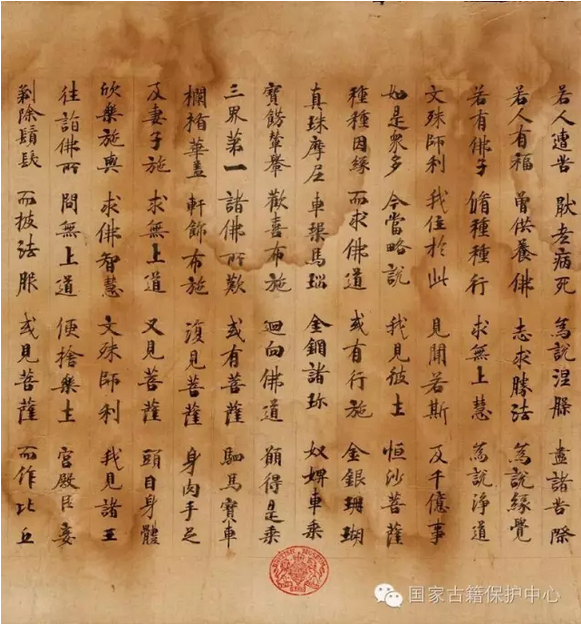 若人遭苦 猒老病死 為說涅槃 盡諸苦際
若人有福 曾供養佛 志求勝法 為說緣覺
若有佛子 脩種種行 求無上慧 為說淨道
文殊師利 我住於此 見聞若斯 及千億事
如是衆多 今當略說 我見彼土 恒沙菩薩
種種因緣 而求佛道 或有行施 金銀珊瑚
真珠摩尼 車磲馬瑙 金剛諸珎 奴婢車乘
寶飾輦轝 歡喜布施 迴向佛道 願得是乘
三界第一 諸佛所歎 或有菩薩 駟馬寶車
欄楯華蓋 軒飾布施 復見菩薩 身肉手足
及妻子施 求無上道 又見菩薩 頭目身體
欣樂施與 求佛智慧 文殊師利 我見諸王
往詣佛所 問無上道 便捨樂土 宮殿臣妾
剃除鬚髮 而披法服 或見菩薩 而作比丘
国家古籍保护中心